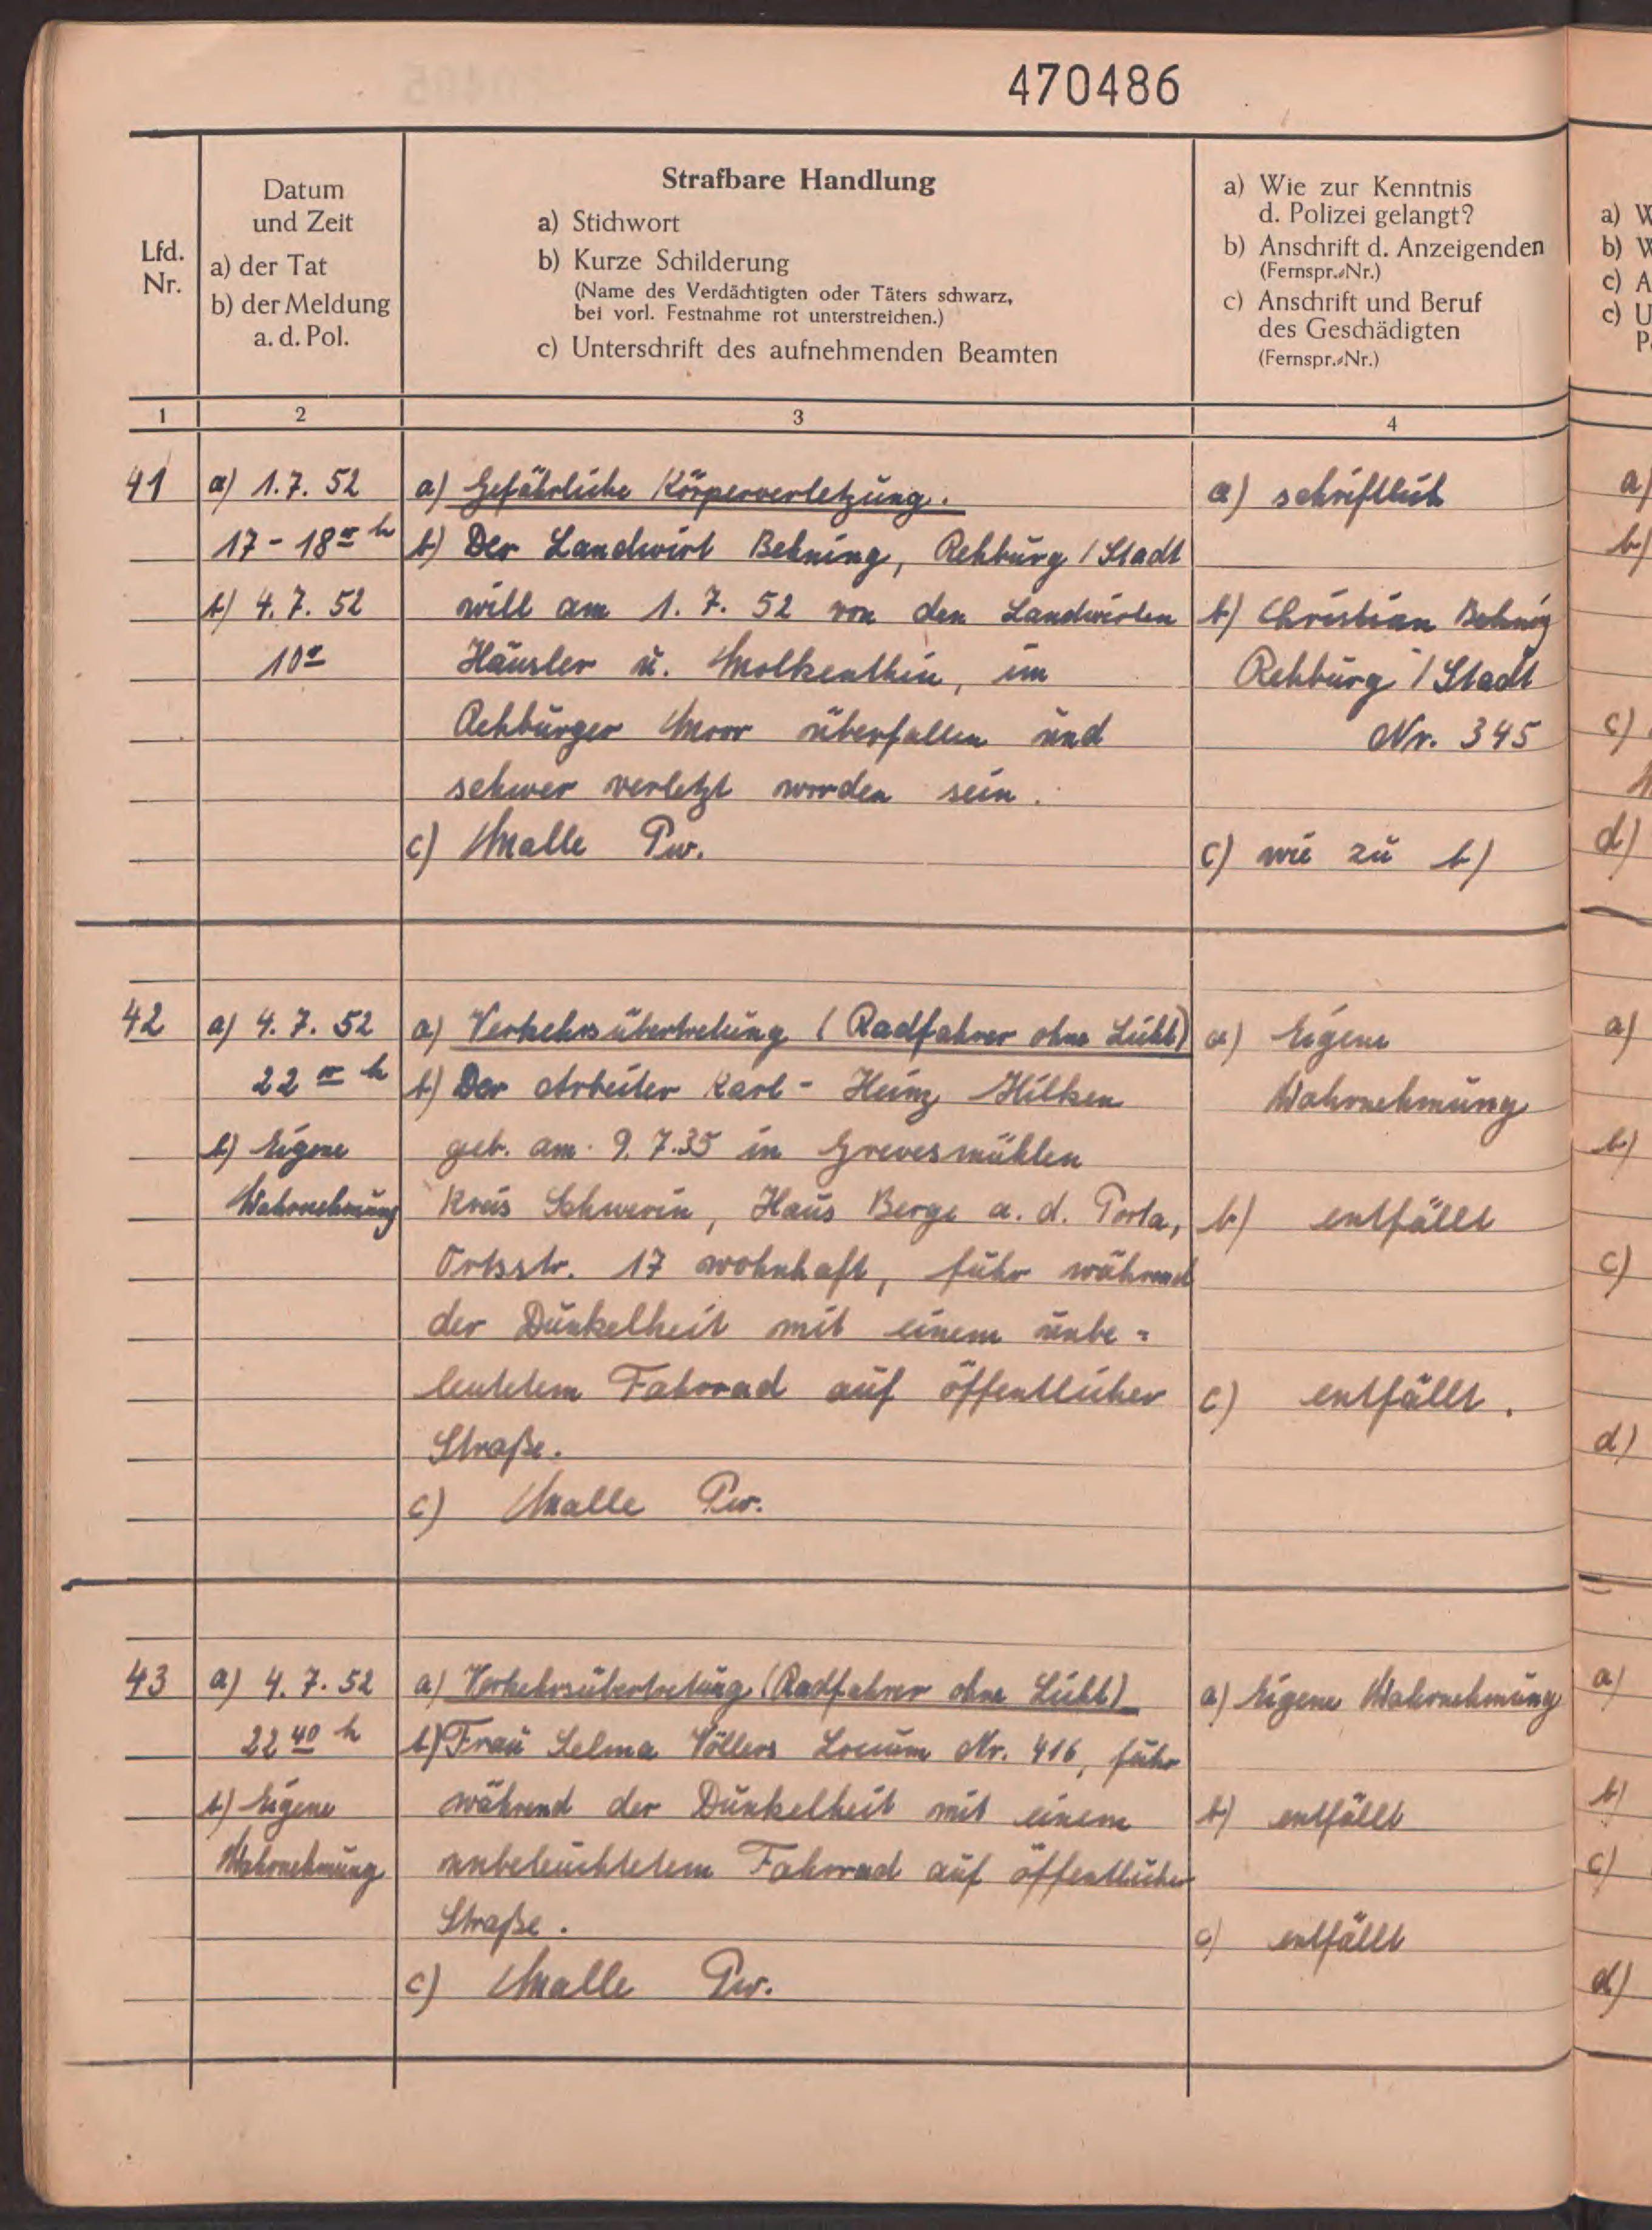 470486
Lfd.
Nr.
Datum
und Zeit
a) der Tat
b) der Meldung
a. d. Pol.
Strafbare Handlung
a) Stichwort
b) Kurze Schilderung
(Name des Verdächtigten oder Täters schwarz,
bei vorl. Festnahme rot unterstreichen.)
c) Unterschrift des aufnehmenden Beamten
a) Wie zur Kenntnis
d. Polizei gelangt?
b) Anschrift d. Anzeigenden
(Fernspr.-Nr.)
c) Anschrift und Beruf
des Geschädigten
(Fernspr.-Nr.)
1
2
3
4
41
a) 1.7. 52
17 - 18 00 h
b) 4.7. 52
10 00
a) Gefährliche Körperverletzung.
b) Der Landwirt Behning, Rehburg / Stadt
will am 1.7.52 von den Landwirten
Häusler u. Molkenthin, im
Rehburger Moor überfallen und
schwer verletzt worden sein.
c) Malle Pw.
a) schriftlich
b) Christian Behning
Rehburg / Stadt
Nr. 345
c) wie zu b)
42
a) 4.7. 52
22 00 h
b) Eigene
Wahrnehmung
a) Verkehrsübertretung (Radfahrer ohne Licht)
b) Der Arbeiter Karl - Heinz Hilken
geb. am 9.7.35 in Grevesmühlen
Kreis Schwerin, Haus Berge a. d. Porta,
Ortsstr. 17 wohnhaft, fuhr während
der Dunkelheit mit einem unbe-
leuchtetem Fahrrad auf öffentlicher
Straße.
c) Malle Pw.
a) Eigene
Wahrnehmung
b) entfällt
c) entfällt.
43
a) 4.7. 52
22 40 h
b) Eigene
Wahrnehmung
a) Verkehrsübertretung (Radfahrer ohne Licht)
b) Frau Selma Völlers Loccum Nr. 416, fuhr
während der Dunkelheit mit einem
unbeleuchtetem Fahrrad auf öffentlicher
Straße.
c) Malle Pw.
a) Eigene Wahrnehmung
b) entfällt
c) entfällt
a) W
b) W
c) A
c) U
P
a)
b)
c)
d)
a)
b)
c)
d)
a)
b)
c)
d)